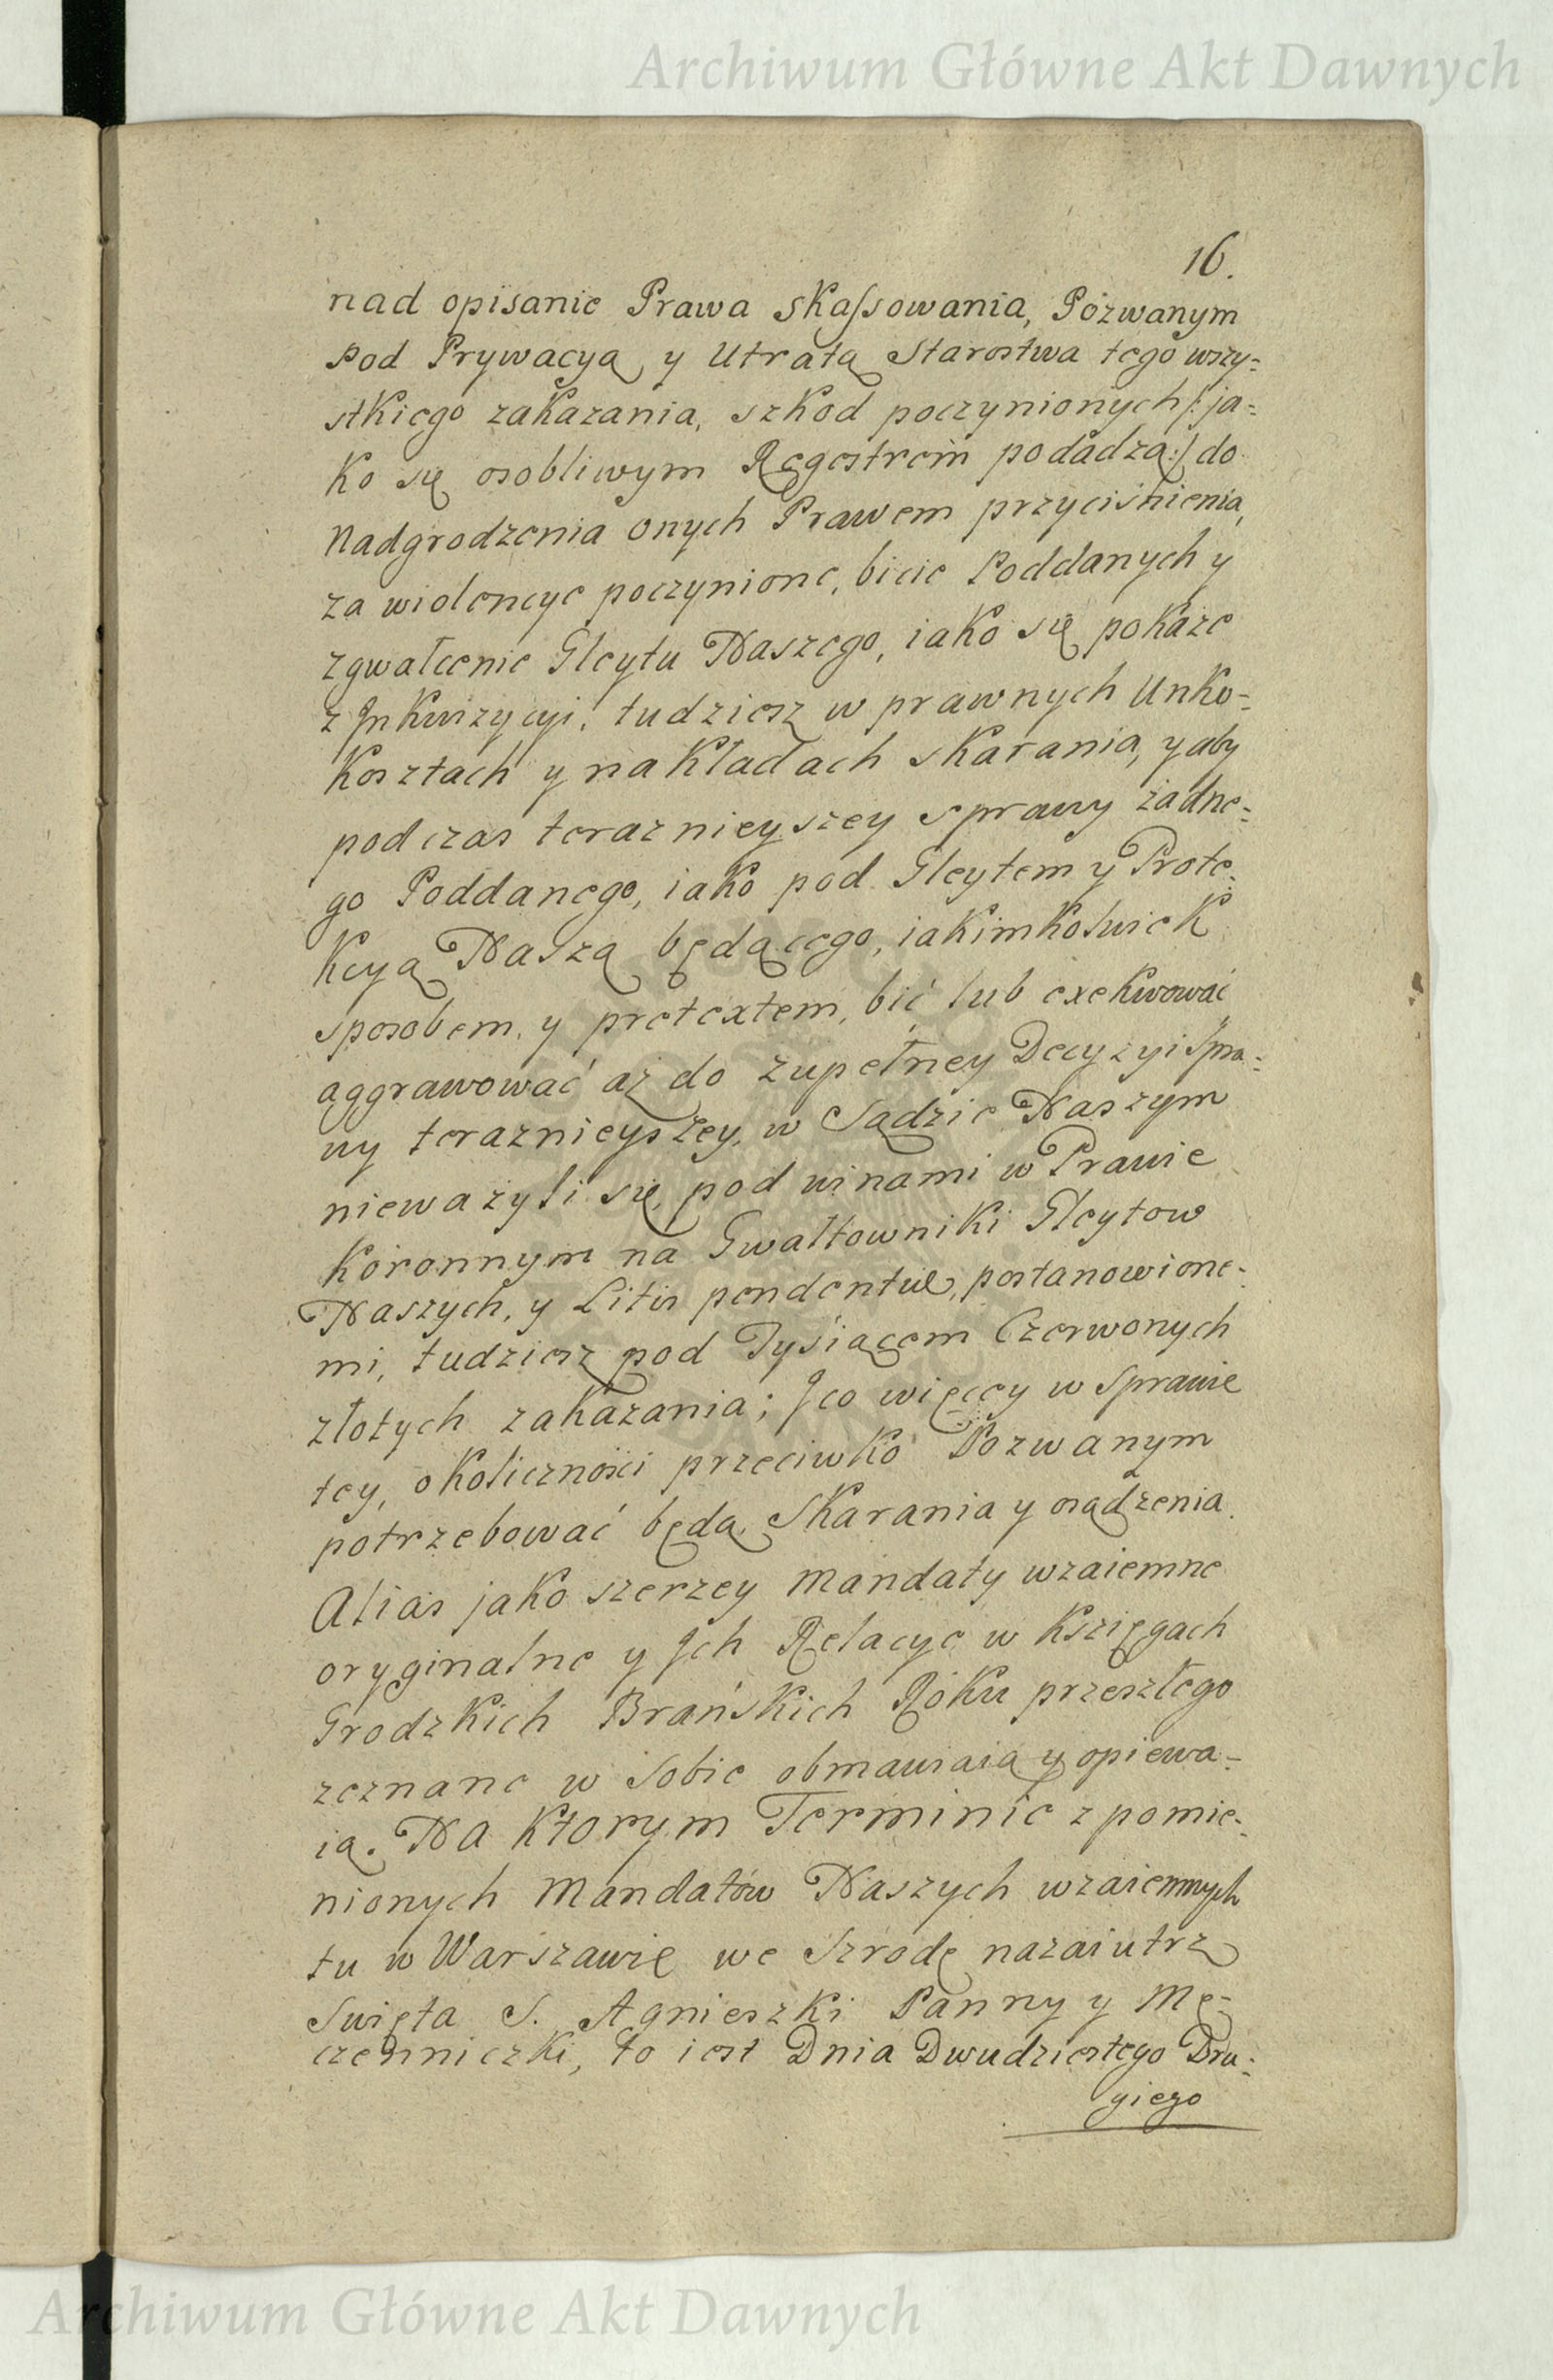 Archiwum Główne Akt Dawnych
16.
nad opisanie Prawa skassowania, Pozwanym
pod Prywacyą y Utratą Starostwa tego wszy=
stkiego zakazania, szkod poczynionych /: ja=
ko się osobliwym Regestrem podadzą :/ do
nadgrodzenia onych Prawem przyciśnienia,
za wiolencye poczynione, bicie Poddanych y
zgwałcenie Gleytu Naszego, iako się pokaże
z Jnkwizycyi, tudziesz w prawnych Unko=
kosztach y nakładach skarania, y aby
podczas teraznieyszey sprawy żadne=
go Poddanego, iako pod Gleytem y Prote=
kcyą Naszą będącego, iakimkolwiek
sposobem y pretextem, bić lub exekwować,
aggrawować aż do zupełney Decyzyi Spra=
wy teraznieyszey, w Sądzie Naszym
nieważyli się, pod winami w Prawie
Koronnym na Gwałtowniki Gleytow
Naszych, y Litis pendentiæ, postanowione=
mi, tudziesz pod Tysiącem Czerwonych
złotych zakazania; Jco więcey w Sprawie
tey, okoliczności przeciwko Pozwanym
potrzebować będą, Skarania y osądzenia.
Alias jako szerzey Mandaty wzaiemne
oryginalne y Jch Relacye w Księgach
Grodzkich Brańskich Roku przeszłego
zeznane w Sobie obmawiaią y opiewa=
ią. Na ktorym Terminie z pomie=
nionych Mandatów Naszych wzaiemnych
tu w Warszawie we Szrodę nazaiutrz
Swięta S. Agnieszki Panny y Mę=
czenniczki, to iest Dnia Dwudziestego Dru=
giego
Archiwum Główne Akt Dawnych